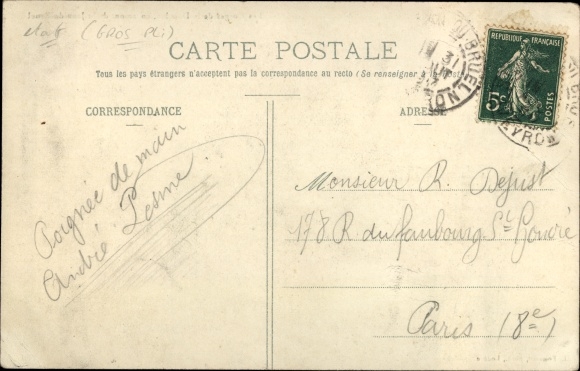 (GROS PLI)
CARTE POSTALE
Tous les pays étrangers n'acceptent pas la correspondance au recto (Se renseigner à la Poste)
CORRESPONDANCE
ADRESSE
REPUBLIQUE FRANÇAISE
5c
POSTES
Poignée de main
André Lesme
Monsieur R. Dejust
178 R. du faubourg St Honoré
Paris (8e)